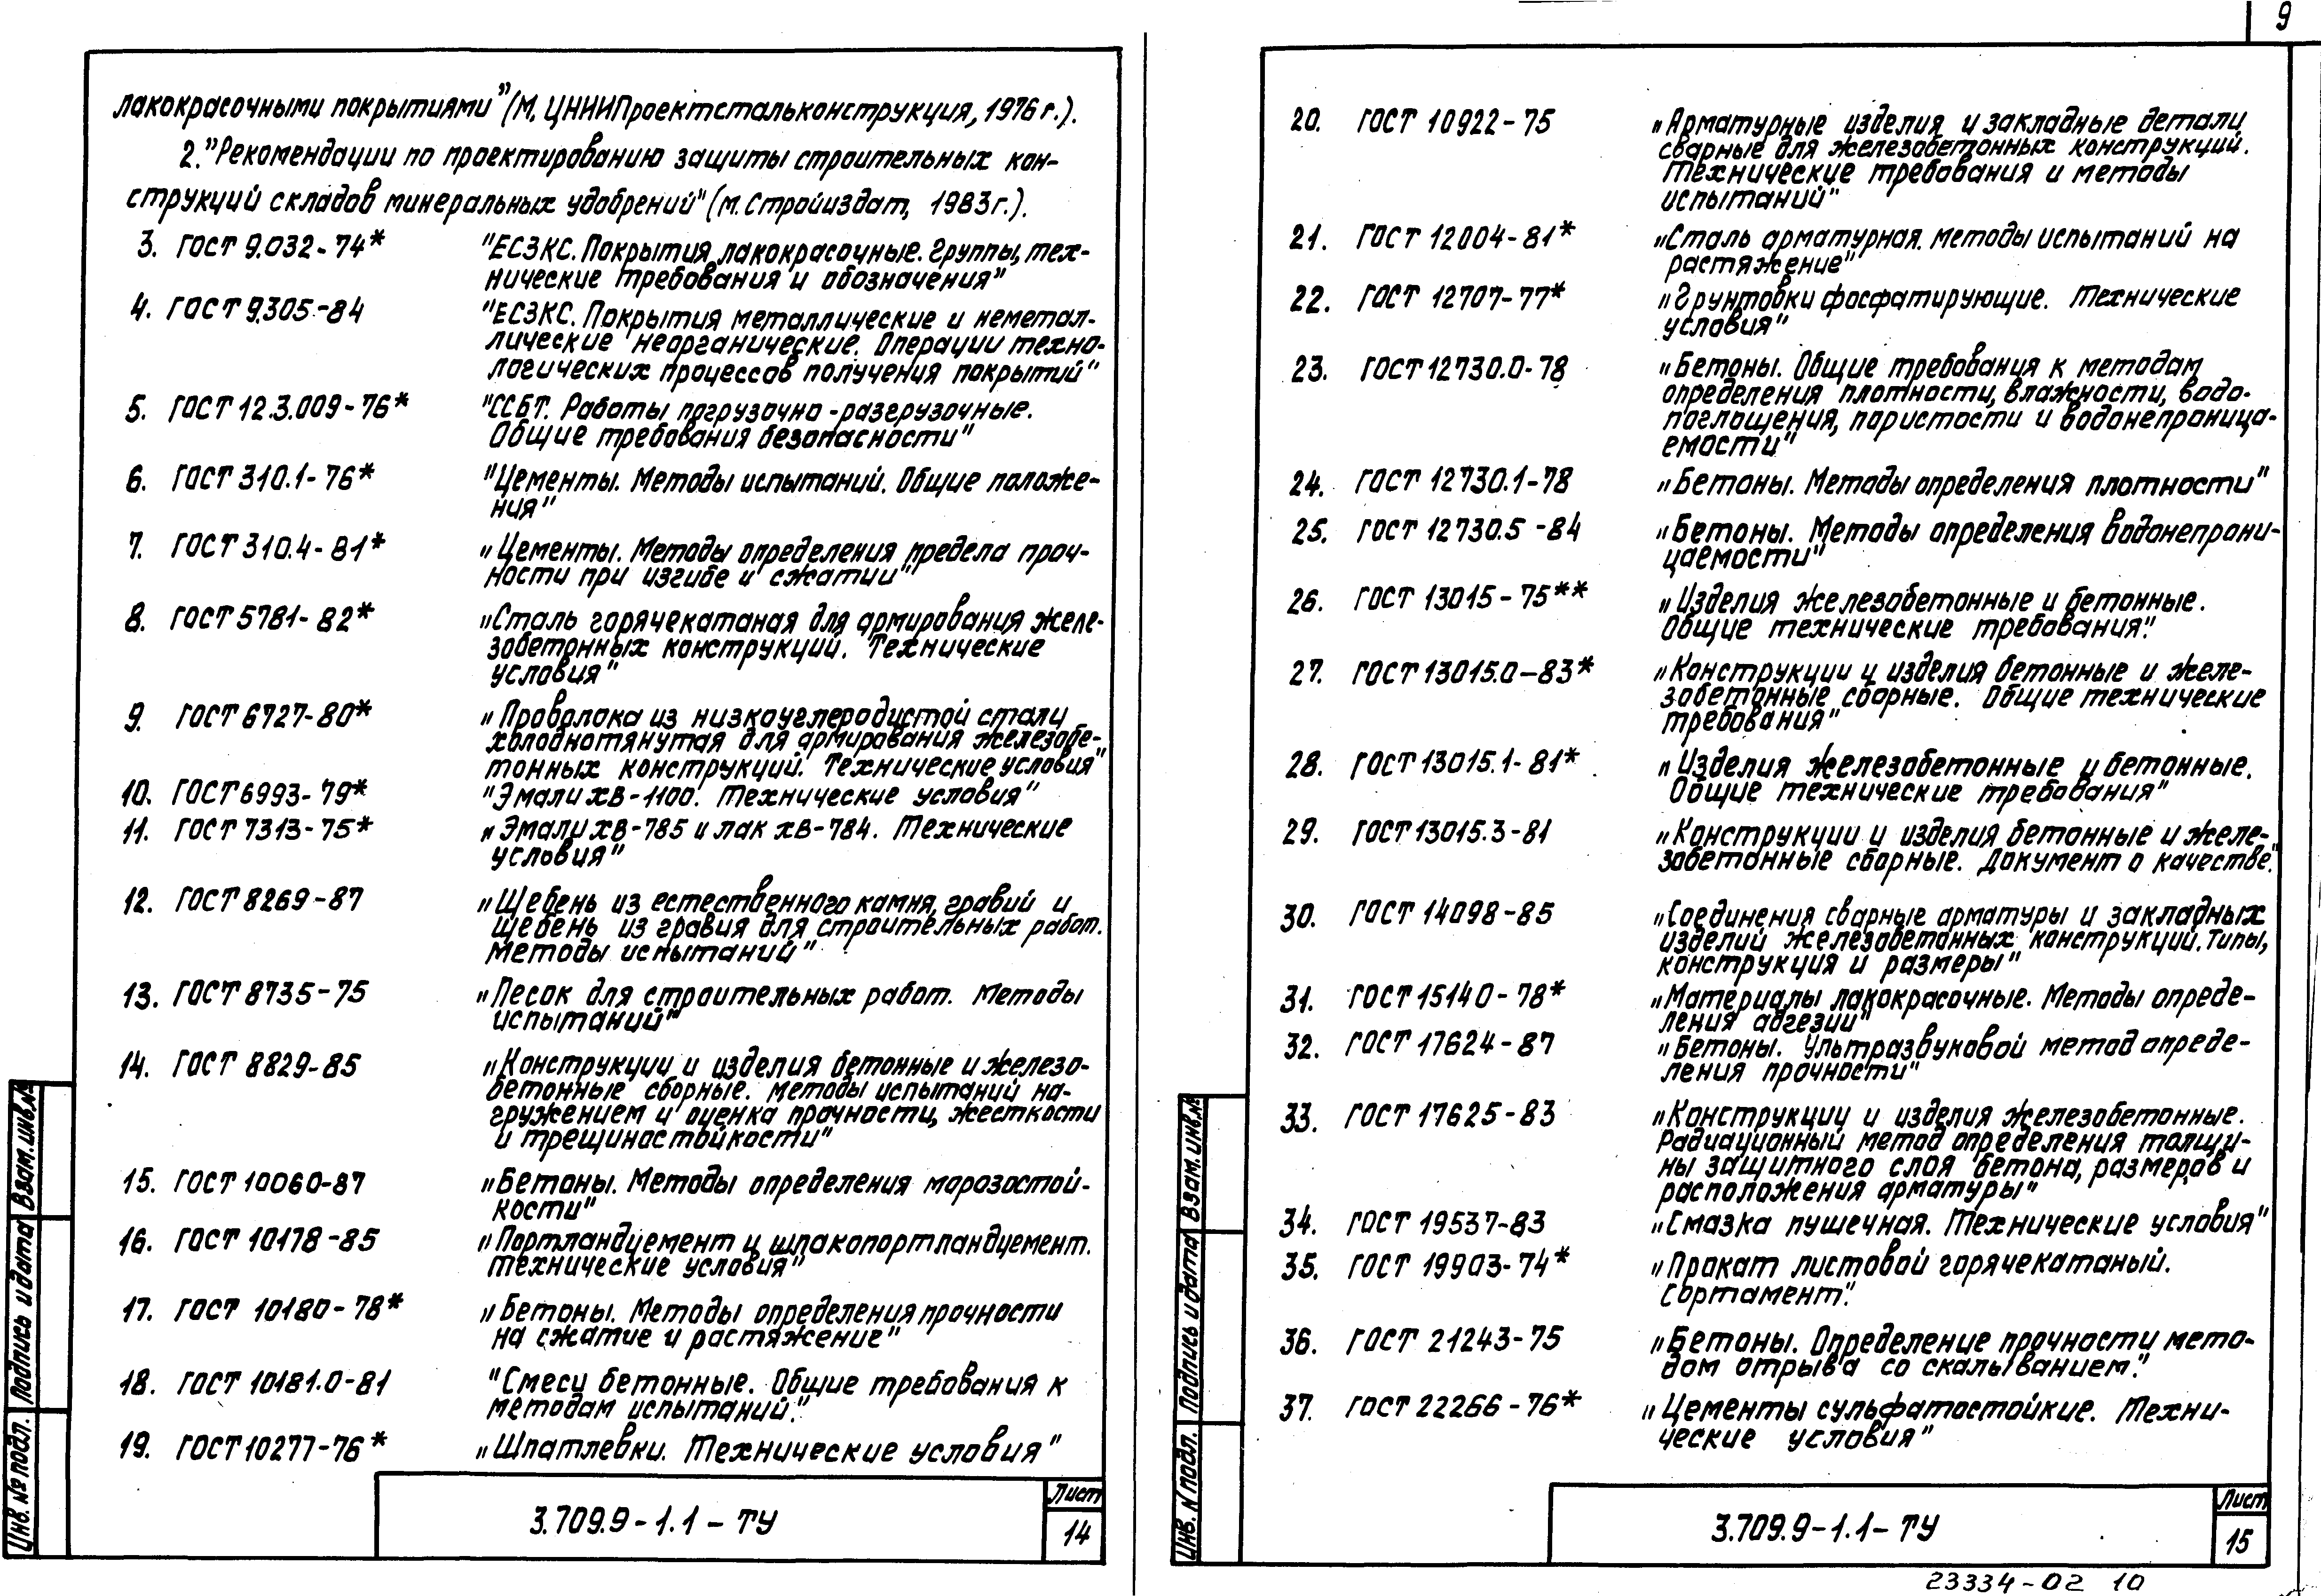 9
лакокрасочными покрытиями" (М, ЦНИИПроектстальконструкция, 1976 г.).
2."Рекомендации по проектированию защиты строительных кон-
струкций складов минеральных удобрений" (М. Стройиздат, 1983г.).
3. ГОСТ 9.032-74* "ЕСЗКС. Покрытия лакокрасочные. Группы, тех-
нические требования и обозначения"
4. ГОСТ 9.305-84 "ЕСЗКС. Покрытия металлические и неметал-
лические неорганические. Операции техно-
логических процессов получения покрытий"
5. ГОСТ 12.3.009-76* "ССБТ. Работы погрузочно-разгрузочные.
Общие требования безопасности"
6. ГОСТ 310.1-76* "Цементы. Методы испытаний. Общие положе-
ния"
7. ГОСТ 310.4-81* „Цементы. Методы определения предела проч-
ности при изгибе и сжатии"
8. ГОСТ 5781-82* „Сталь горячекатаная для армирования желе-
зобетонных конструкций. Технические
условия"
9. ГОСТ 6727-80* „Проволока из низкоуглеродистой стали
холоднотянутая для армирования железобе-
тонных конструкций. Технические условия"
10. ГОСТ 6993-79* "Эмали ХВ-1100. Технические условия"
11. ГОСТ 7313-75* „Эмали ХВ-785 и лак ХВ-784. Технические
условия"
12. ГОСТ 8269-87 „Щебень из естественного камня, гравий и
щебень из гравия для строительных работ.
Методы испытаний"
13. ГОСТ 8735-75 „Песок для строительных работ. Методы
испытаний"
14. ГОСТ 8829-85 „Конструкции и изделия бетонные и железо-
бетонные сборные. Методы испытаний на-
гружением и оценка прочности, жесткости
и трещиностойкости"
15. ГОСТ 10060-87 „Бетоны. Методы определения морозостой-
кости"
16. ГОСТ 10178-85 „Портландцемент и шлакопортландцемент.
Технические условия"
17. ГОСТ 10180-78* „Бетоны. Методы определения прочности
на сжатие и растяжение"
18. ГОСТ 10181.0-81 "Смеси бетонные. Общие требования к
методам испытаний."
19. ГОСТ 10277-76* „Шпатлевки. Технические условия"
3.709.9-1.1-ТУ
Лист
14
Инв. № подл. Подпись и дата Взам. инв. №
20. ГОСТ 10922-75 „Арматурные изделия и закладные детали
сварные для железобетонных конструкций.
Технические требования и методы
испытаний"
21. ГОСТ 12004-81* „Сталь арматурная. Методы испытаний на
растяжение"
22. ГОСТ 12707-77* „Грунтовки фосфатирующие. Технические
условия"
23. ГОСТ 12730.0-78 „Бетоны. Общие требования к методам
определения плотности, влажности, водо-
поглощения, пористости и водонепроница-
емости"
24. ГОСТ 12730.1-78 „Бетоны. Методы определения плотности"
25. ГОСТ 12730.5-84 „Бетоны. Методы определения водонепрони-
цаемости"
26. ГОСТ 13015-75** „Изделия железобетонные и бетонные.
Общие технические требования".
27. ГОСТ 13015.0-83* „Конструкции и изделия бетонные и желе-
зобетонные сборные. Общие технические
требования"
28. ГОСТ 13015.1-81* „Изделия железобетонные и бетонные.
Общие технические требования"
29. ГОСТ 13015.3-81 „Конструкции и изделия бетонные и желе-
зобетонные сборные. Документ о качестве".
30. ГОСТ 14098-85 „Соединения сварные арматуры и закладных
изделий железобетонных конструкций. Типы,
конструкция и размеры"
31. ГОСТ 15140-78* „Материалы лакокрасочные. Методы опреде-
ления адгезии"
32. ГОСТ 17624-87 „Бетоны. Ультразвуковой метод опреде-
ления прочности"
33. ГОСТ 17625-83 „Конструкции и изделия железобетонные.
Радиационный метод определения толщи-
ны защитного слоя бетона, размеров и
расположения арматуры"
34. ГОСТ 19537-83 „Смазка пушечная. Технические условия"
35. ГОСТ 19903-74* „Прокат листовой горячекатаный.
Сортамент".
36. ГОСТ 21243-75 „Бетоны. Определение прочности мето-
дом отрыва со скалыванием".
37. ГОСТ 22266-76* „Цементы сульфатостойкие. Техни-
ческие условия"
3.709.9-1.1-ТУ
Лист
15
Инв. N подл. Подпись и дата Взам. инв. №
23334-02 10